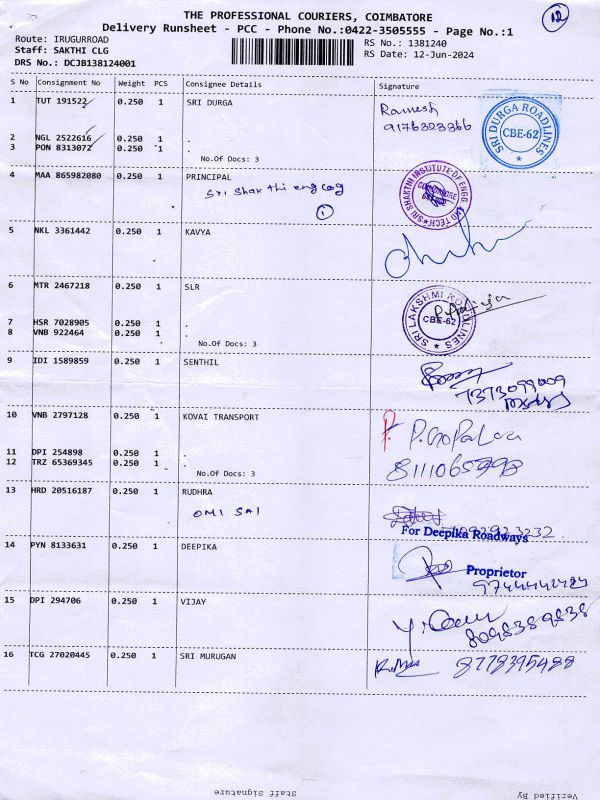 12
THE PROFESSIONAL COURIERS, COIMBATORE
Delivery Runsheet - PCC - Phone No.:0422-3505555 - Page No.:1
Route: IRUGURROAD
RS No.: 1381240
Staff: SAKTHI CLG
RS Date: 12-Jun-2024
DRS No.: DCJB138124001
S No Consignment No Weight PCS Consignee Details Signature
1 TUT 191522 0.250 1 SRI DURGA
Ramesh
9176323366
SRI DURGA ROADLINES
CBE-62
2 NGL 2522616 0.250 1 .
3 PON 8313072 0.250 1 .
No.Of Docs: 3
4 MAA 865982080 0.250 1 PRINCIPAL
Sri Shakthi engg
1
SRI SHAKTHI INSTITUTE OF ENGG AND TECH
COIMBATORE
5 NKL 3361442 0.250 1 KAVYA
6 MTR 2467218 0.250 1 SLR
SRI LAKSHMI ROADLINES
CBE-62
7 HSR 7028905 0.250 1 .
8 VNB 922464 0.250 1 .
No.Of Docs: 3
9 IDI 1589859 0.250 1 SENTHIL
7373099009
10 VNB 2797128 0.250 1 KOVAI TRANSPORT
P. GoPalaa
11 DPI 254898 0.250 1 .
12 TRZ 65369345 0.250 1 .
No.Of Docs: 3
13 HRD 20516187 0.250 1 RUDHRA
OMI SAI
For Deepika Roadways
14 PYN 8133631 0.250 1 DEEPIKA
Proprietor
15 DPI 294706 0.250 1 VIJAY
8098389838
16 TCG 27020445 0.250 1 SRI MURUGAN
8778395488
Staff Signature
Verified By